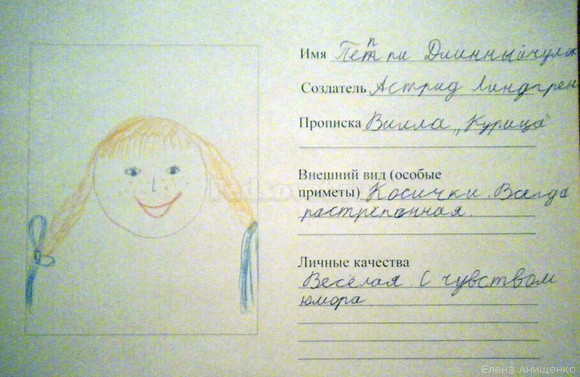 Имя Пеппи Длинныйчулок
Создатель Астрид Линдгрен
Прописка Вилла „Курица"
Внешний вид (особые
приметы) Косички. Всегда
растрёпанная.
Личные качества
Весёлая. С чувством
юмора
Елена Анищенко